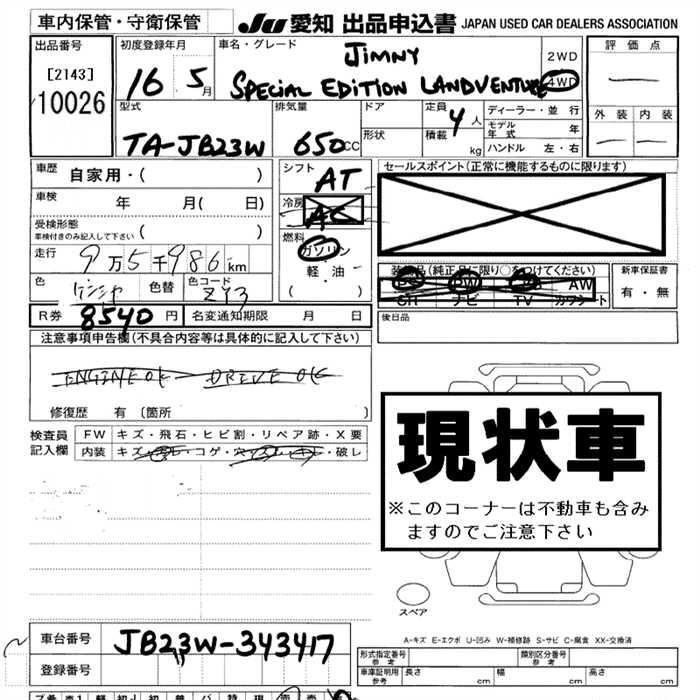 車内保管・守衛保管 JU 愛知 出品申込書 JAPAN USED CAR DEALERS ASSOCIATION
出品番号 初度登録年月 車名・グレード 評価点
[2143] 16 5月 JIMNY 2WD
10026 SPECIAL EDITION LANDVENTURE 4WD
型式 排気量 ドア 定員 4人 ディーラー・並行 外装 内装
TA-JB23W 650CC 形状 積載 kg モデル年式 年
ハンドル 左・右
車歴 自家用・( ) シフト AT セールスポイント(正常に機能するものに限ります)
車検 年 月( 日) 冷房 AC
受検形態 ( )
車検付きのみ記入して下さい
燃料 ガソリン
走行 9万5千986km 軽・油 装備品(純正品に限り○をつけてください) 新車保証書
色 色替 色コード ZY3 ( ) PS PW AW 有・無
SR ナビ TV カワシート
R券 8540円 名変通知期限 月 日 後日品
注意事項申告欄(不具合内容等は具体的に記入して下さい)
ENGINE OK DRIVE OK
修復歴 有 〔箇所 〕
検査員記入欄 FW キズ・飛石・ヒビ割・リペア跡・X要
内装 キズ・ ・コゲ・穴・ ・破レ
現状車
※このコーナーは不動車も含み
ますのでご注意下さい
スペア
A-キズ E-エクボ U-凹み W-補修跡 S-サビ C-腐食 XX-交換済
車台番号 JB23W-343417
登録番号
形式指定番号 参考 類別区分番号 参考
車庫証明用 参考 長さ cm 幅 cm 高さ cm